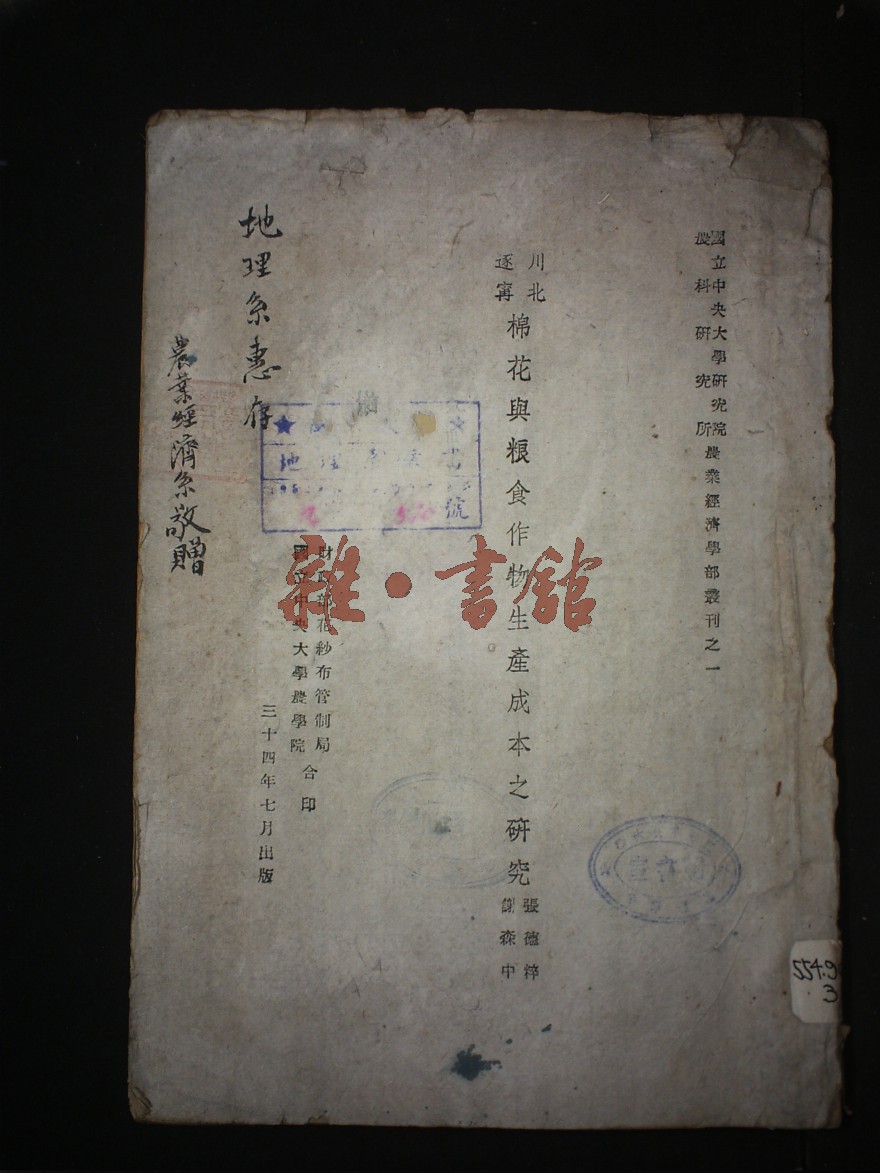 國立中央大學研究院
農科研究所
農業經濟學部叢刊之一
川北
遂寗
棉花與粮食作物生產成本之研究
張德粹
謝森中
財政部花紗布管制局
國立中央大學農學院
合印
三十四年七月出版
地理系惠存
農業經濟系敬贈
地理
號
雜·書舘
554.9
3